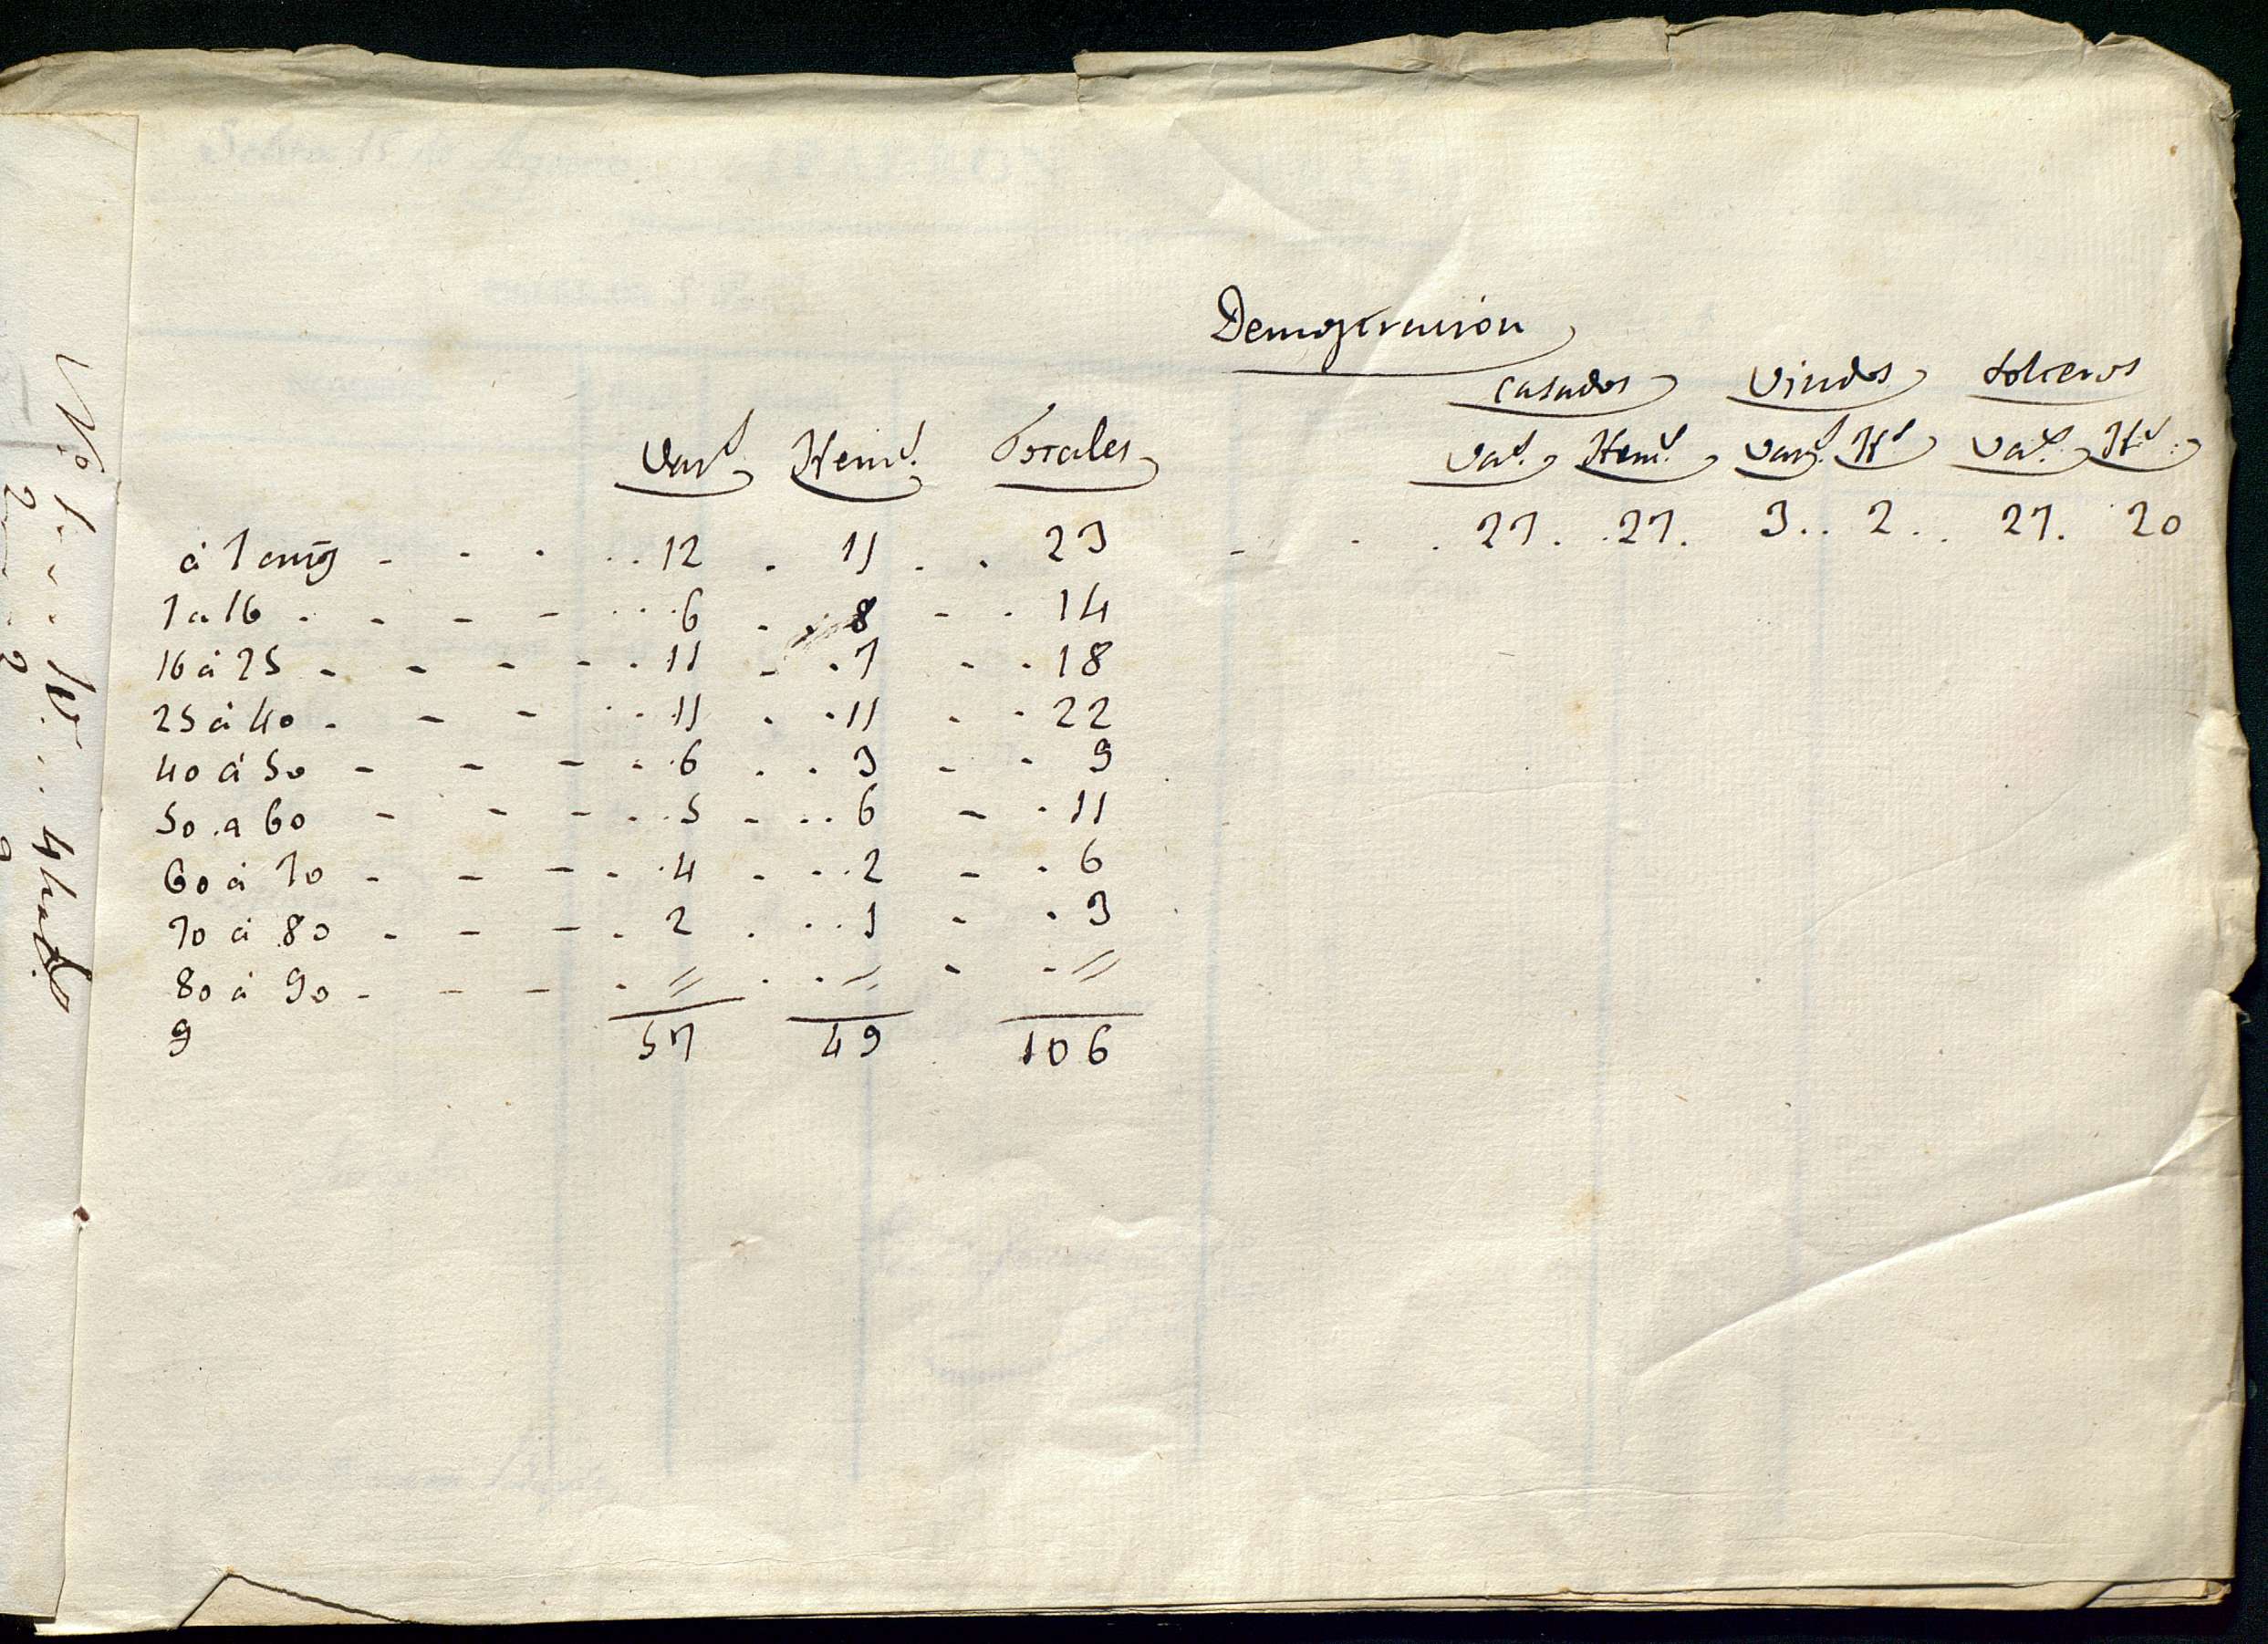 Demostracion
casados viudos solteros
Var.s Hem.s Totales Va.s Hem.s Var.s H.s Va.s H.s
á 7 año - - - 12 . 11 . . 23 - . . 27 . . 27 . 3 . . 2 . . 27 . 20
7 a 16 . - - - . . . 6 . 8 - . 14
16 á 25 - - - - . 11 - . 7 - . 18
25 á 40 - - - . . 11 . . 11 - . 22
40 á 50 - - - . 6 . . 3 - . 9
50 a 60 - - - . . 5 - . . 6 - . 11
60 á 70 - - - . . 4 - . . 2 - . 6
70 á 80 - - - . 2 . . . 1 - . 3
80 á 90 - - - . // . . // - . //
9 57 49 106
N.o 1
2
2